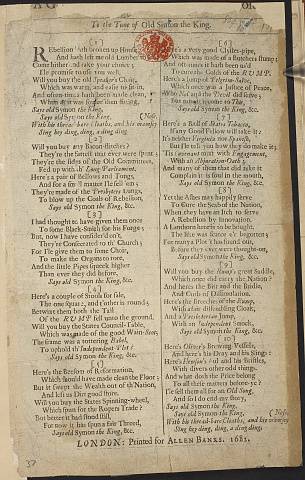 To the Tune of Old Simon the King.
[1]
REbellion hath broken up House,
And hath left me old Lumber to sell
Come hither and take your choice;
He promise to use you well.
Will you buy the old Speaker's Chair,
Which was warm, and easie to sit in,
And oftentimes hath been made clean,
When as it was fouler than fitting,
Says old Symon the King,
Says old Symon the King, (Nose,
With his thread-bare Cloaths, and his
Sing hey ding, ding, a ding ding.
[2]
Will you buy any Bacon-flitches?
They're the fattest that ever were spent,
They're the sides of the Old Committees,
Fed up with th' Long Parliament.
Here's a pair of Bellows and Tongs,
And for a small matter I'le sell 'em;
They're made of the Presbyters Lungs,
To blow up the Coals of Rebellion,
Says old Symon the King, &c.
[3]
I had thought to have given them once
To some Black-Smith for his Forge;
But, now I have consider'd on't,
They're Consecrated to th' Church;
For I'le give them to some Choir,
To make the Organs to rore,
And the little Pipes squeek higher
Than ever they did before,
Says old Symon the King, &c.
[4]
Here's a couple of Stools for sale,
The one square, and t'other is round;
Betwixt them both the Tail
Of the RUMP fell unto the ground.
Will you buy the States Council-Table,
Which was made of the good Wain-Scot;
The frame was a tottering Babel,
To uphold th' Independant Plot:
Says old Symon the King, &c.
[5]
Here's the Beesom of Reformation,
Which should have made clean the Floor;
But it swept the Wealth out of th' Nation,
And left us Dirt good store.
Will you buy the States Spinning-wheel,
Which spun for the Ropers Trade?
But better it had stood still,
For now it has spun a fair Thread,
Says old Symon the King, &c.
[6]
Here's a very good Clister-pipe,
Which was made of a Butchers stump;
And oft-times it hath been us'd
To cure the Colds of the RUMP.
Here's a lump of Pilgrims-Salve,
Which once was a Justice of Peace,
Who Noll and the Devil did serve;
But now it is come to This,
Says old Symon the King, &c.
[7]
Here's a Roll of States Tobacco,
If any Good Fellow will take it;
'Tis neither Virginia nor Spanish,
But I'le tell you how they do make it:
'Tis Covenant mixt with Engagement,
With an Abjuration-Oath;
And many of them that did take it
Complain it is foul in the mouth,
Says old Symon the King, &c.
[8]
Yet the Ashes may happily serve
To Cure the Scab of the Nation,
When they have an Itch to serve
A Rebellion by Innovation.
A Lanthorn here is to be bought,
The like was scarce e'r begotten;
For many a Plot 't has found out,
Before they ever were thought-on,
Says old Symon the King, &c.
[9]
Will you buy the Rump's great Saddle,
Which once did carry the Nation?
And here's the Bitt and the Bridle,
And Curb of Dissimulation.
Here's the Breeches of the Rump,
With a fair dissembling Cloak,
And a Presbyterian Jump,
With an Independant Smock,
Says old Symon the King, &c.
[10]
Here's Oliver's Brewing-Vessels,
And here's his Dray and his Slings:
Here's Hewson's Awl and his Bristles,
With divers other odd things.
And what doth the Price belong
To all these matters before-ye?
I'le sell them all for an Old Song,
And so I do end my story,
Says old Symon the King,
Says old Symon the King, (Nose,
With his thread-bare Cloaths, and his
Sing hey ding, ding, a ding ding.
LONDON: Printed for ALLEN BANKS. 1682.
37